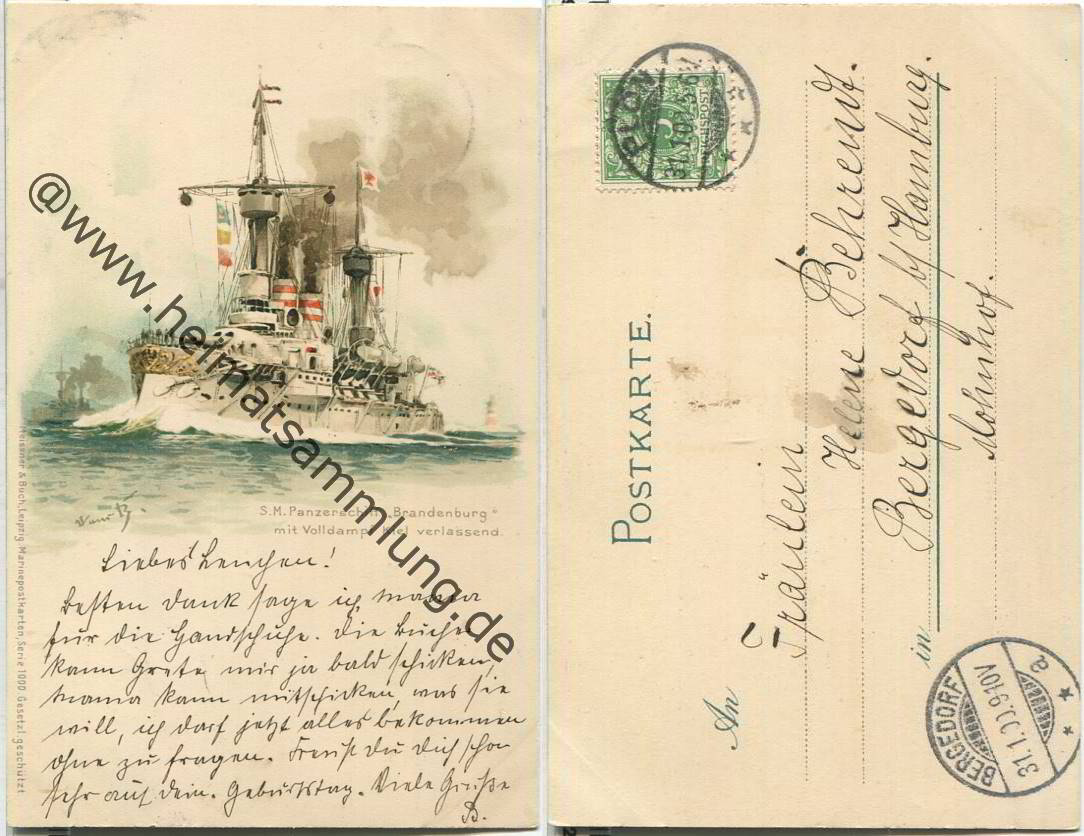 S.M. Panzerschiff „Brandenburg“
mit Volldampf Kiel verlassend.
Meissner & Buch, Leipzig, Marinepostkarten, Serie 1000 Gesetzl. geschützt
Liebes Lenchen!
Besten Dank sage ich, Mama
für die Handschuhe. Die Bücher
kann Grete mir ja bald schicken,
Mama kann mitschicken, was sie
will, ich darf jetzt alles bekommen
ohne zu fragen. Freust du dich schon
sehr auf dein. Geburtstag. Viele Grüße
B.
@www.heimatsammlung.de
REICHSPOST
5
PLÖN
31.1.01.5-6N
POSTKARTE.
An
Fräulein
Helene Behrendt.
in
Bergedorf b/ Hamburg.
Mohnhof.
BERGEDORF
31.1.01.9-10V
a.